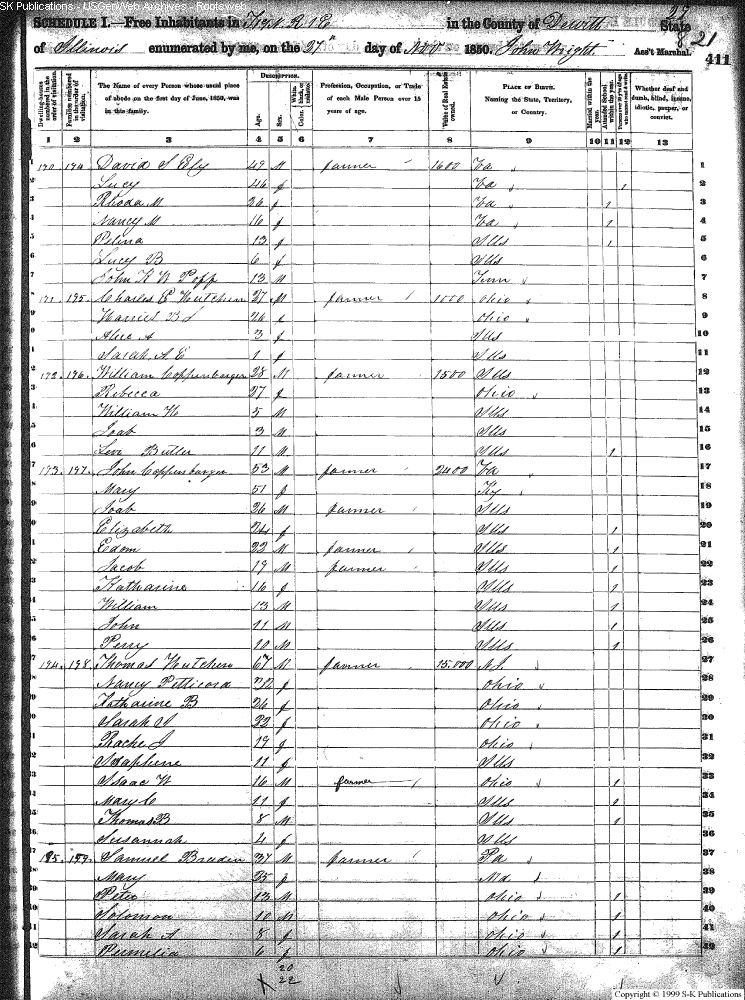 SK Publications - USGenWeb Archives - Rootsweb
27
SCHEDULE I.—Free Inhabitants in R 1 E in the County of Dewitt State
of Illinois enumerated by me, on the 27th day of Nov 1850. John Wright Ass't Marshal.
21
411
Dwelling-houses numbered in the order of visitation.
Families numbered in the order of visitation.
The Name of every Person whose usual place of abode on the first day of June, 1850, was in this family.
DESCRIPTION.
Age.
Sex.
Color, White, black, or mulatto.
Profession, Occupation, or Trade of each Male Person over 15 years of age.
Value of Real Estate owned.
PLACE OF BIRTH. Naming the State, Territory, or Country.
Married within the year.
Attended School within the year.
Persons over 20 y'rs of age who cannot read & write.
Whether deaf and dumb, blind, insane, idiotic, pauper, or convict.
1 2 3 4 5 6 7 8 9 10 11 12 13
David S Ely 49 M farmer 1600 Va 1
Lucy 46 f Va 1 2
Rhoda M 26 f Va 1 3
Nancy M 16 f Va 1 4
13 f Ills 1 5
Lucy B 6 f Ills 6
John K W 13 M Tenn 7
195 Charles E 27 M farmer 1000 Ohio 8
Harriet B 26 f Ohio 9
3 f Ills 10
Sarah A E 1 f Ills 11
196 William Coppenbarger 28 M farmer 1500 Ills 12
Rebecca 27 f Ohio 13
William H 5 M Ills 14
Joab 3 M Ills 15
Levi Butler 11 M Ills 1 16
193 197 John Coppenbarger 53 M farmer 2400 Va 17
Mary 51 f Ky 18
Joab 26 M farmer Ills 19
Elizabeth 24 f Ills 1 20
Edom 22 M farmer Ills 1 21
Jacob 19 M farmer Ills 1 22
Katharine 16 f Ills 1 23
William 13 M Ills 1 24
John 11 M Ills 1 25
Perry 10 M Ills 1 26
194 198 Thomas 67 M farmer 15.000 N.J. 27
Nancy Petticord f Ohio 28
Katharine B 26 f Ohio 29
Sarah 22 f Ohio 30
Rachel J 19 f Ohio 31
11 f Ills 32
Isaac W 16 M farmer Ohio 1 33
Mary C 11 f Ills 1 34
Thomas B 8 M Ills 1 35
Susannah 4 f Ills 36
195 199 Samuel 37 M farmer Pa 37
Mary 35 f Md 38
Peter 13 M Ohio 1 39
Solomon 10 M Ohio 1 40
Sarah A 8 f Ohio 1 41
Permelia 6 f Ohio 1 42
20
22
Copyright © 1999 S-K Publications